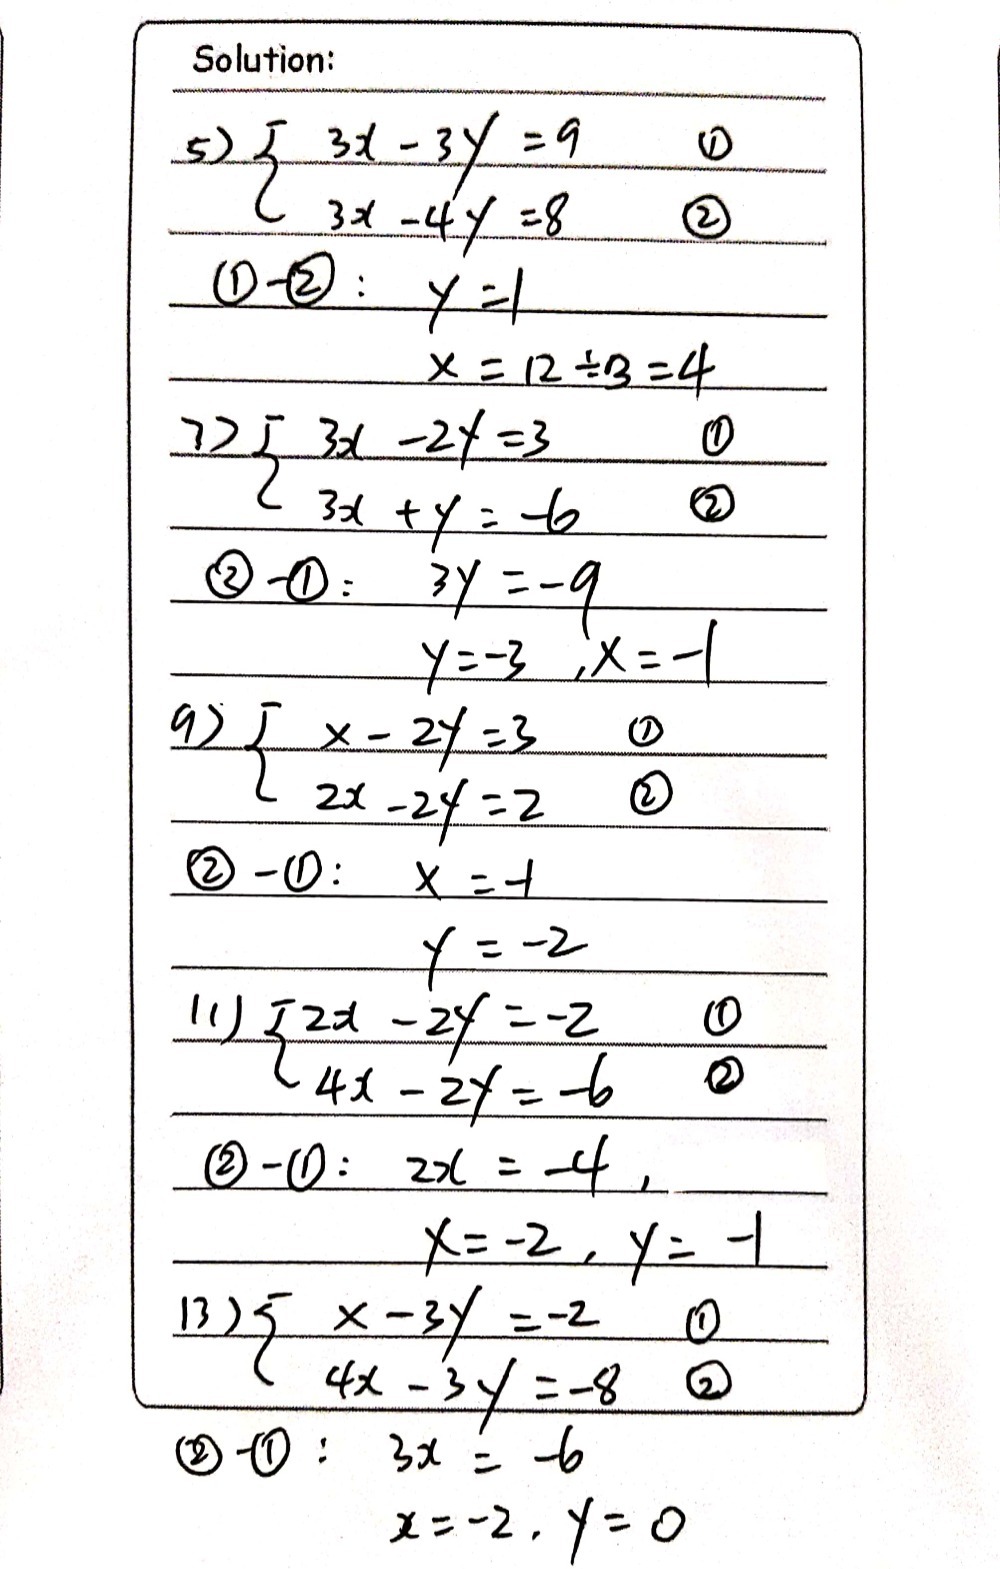 Solution:
5) { 3x - 3y = 9 ①
3x - 4y = 8 ②
① - ② : y = 1
x = 12 ÷ 3 = 4
7) { 3x - 2y = 3 ①
3x + y = -6 ②
② - ① : 3y = -9
y = -3 , x = -1
9) { x - 2y = 3 ①
2x - 2y = 2 ②
② - ① : x = -1
y = -2
11) { 2x - 2y = -2 ①
4x - 2y = -6 ②
② - ① : 2x = -4 ,
x = -2 , y = -1
13) { x - 3y = -2 ①
4x - 3y = -8 ②
② - ① : 3x = -6
x = -2 . y = 0